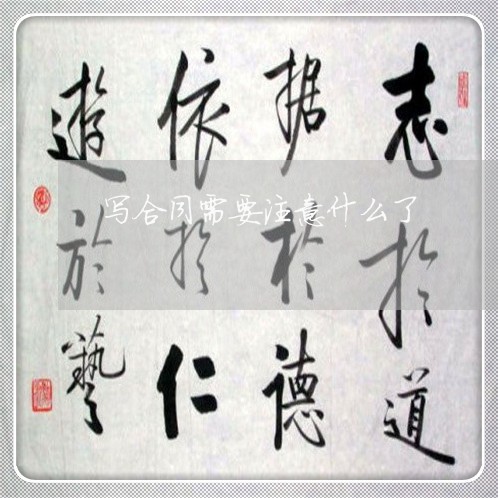 志於道
据於德
依於仁
遊於藝
写合同需要注意什么了